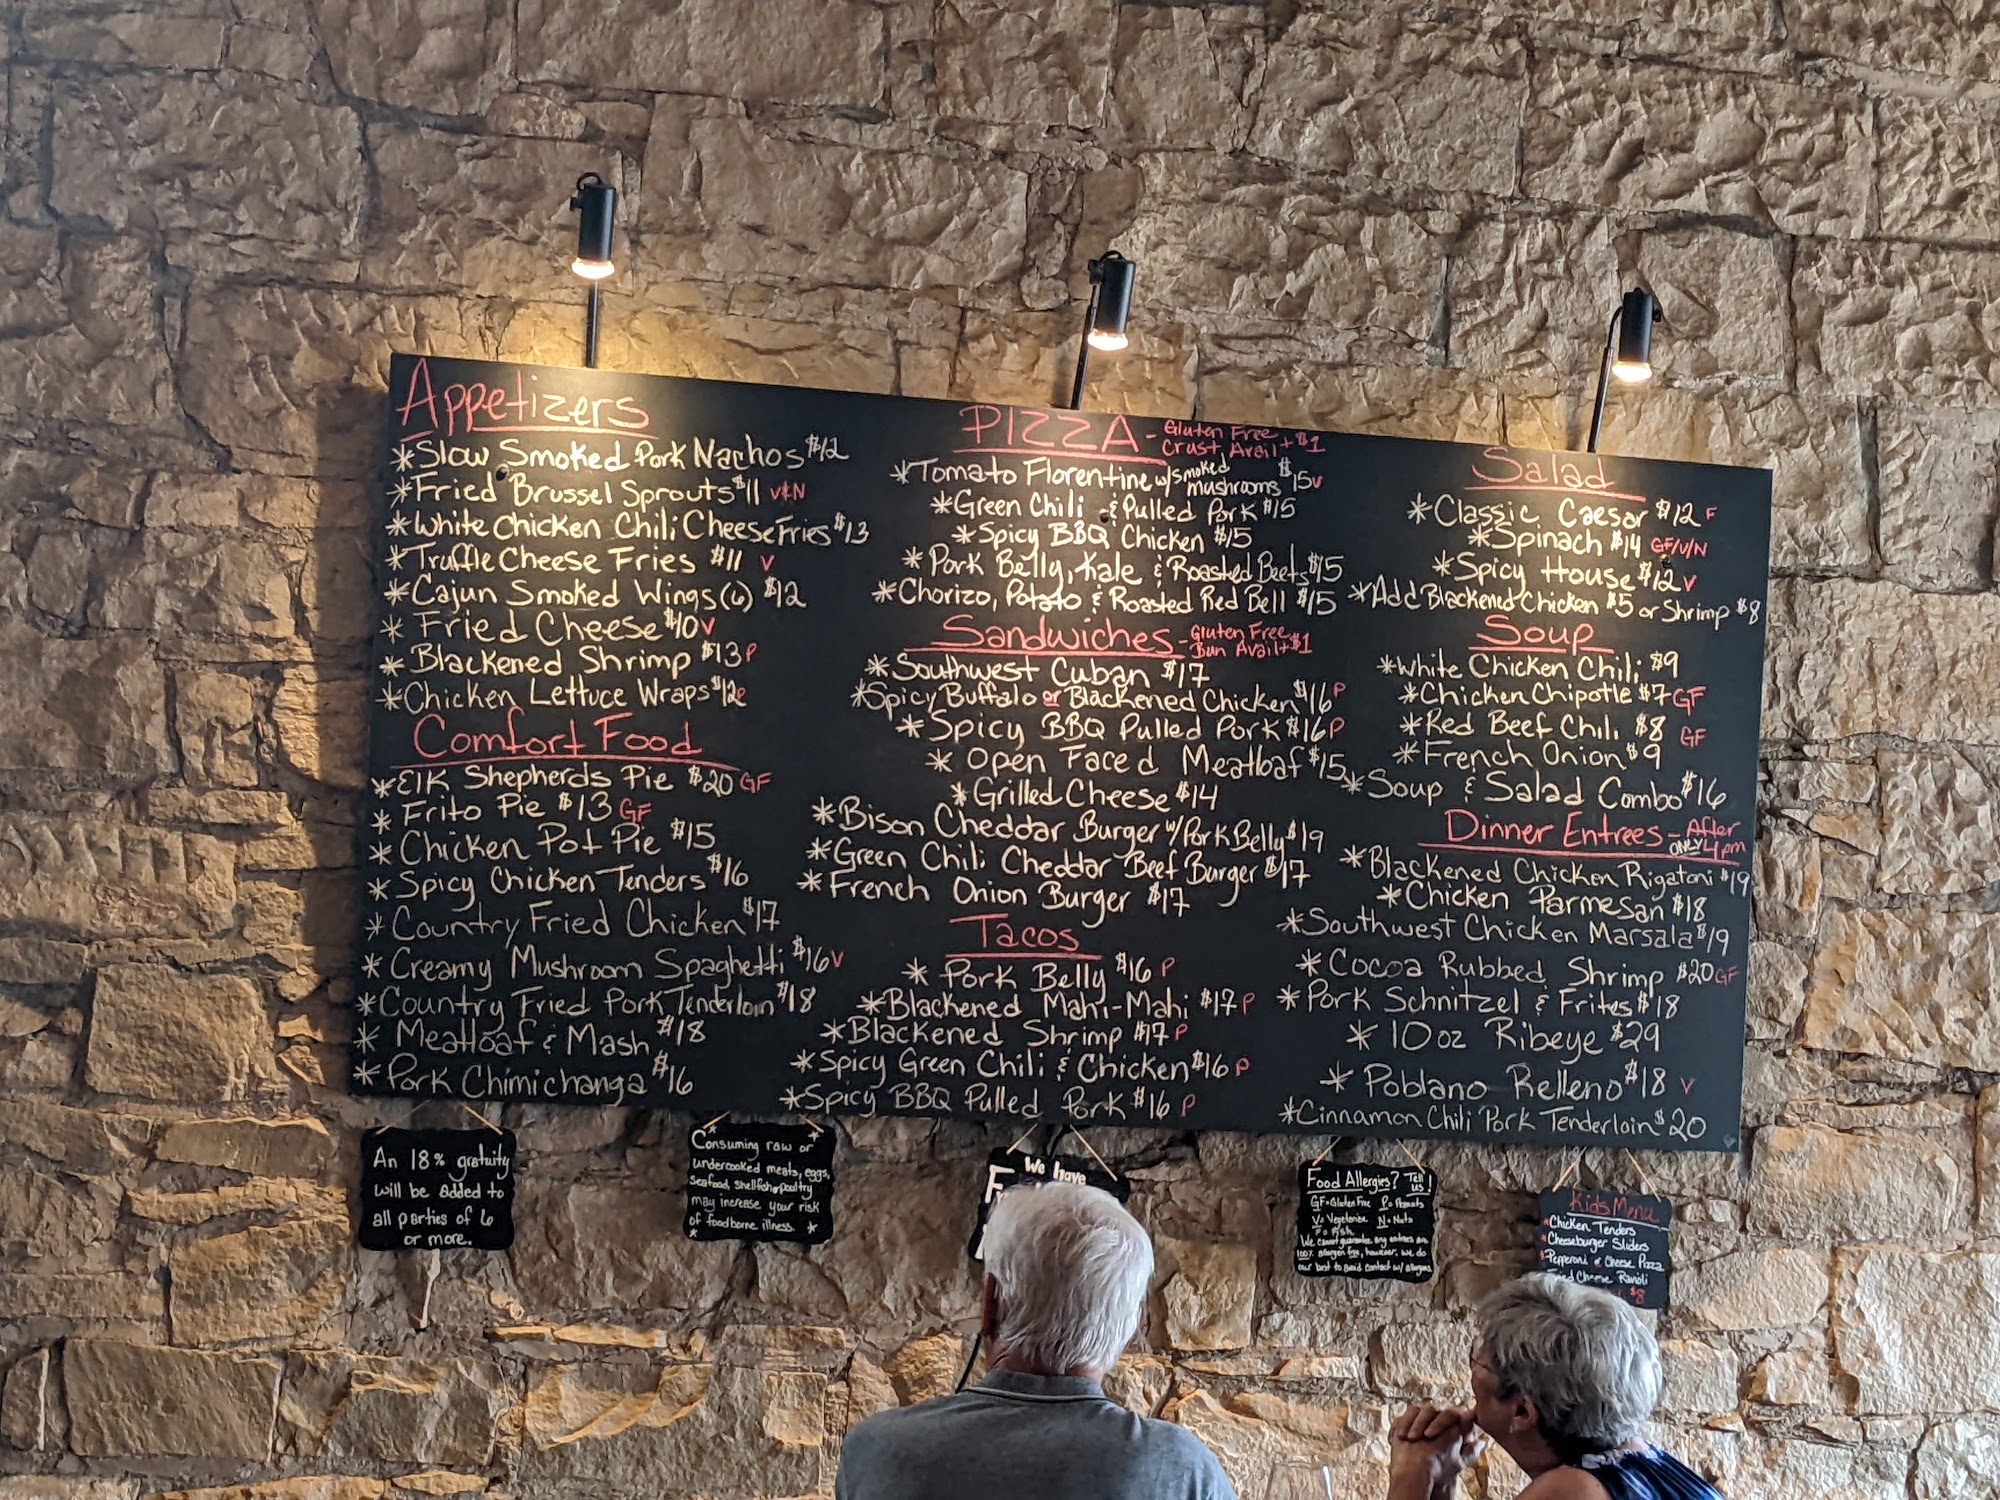 Appetizers
*Slow Smoked Pork Nachos $12
*Fried Brussel Sprouts $11 V&N
*White Chicken Chili Cheese Fries $13
*Truffle Cheese Fries $11 V
*Cajun Smoked Wings (6) $12
*Fried Cheese $10 V
*Blackened Shrimp $13 P
*Chicken Lettuce Wraps $12 P
Comfort Food
*Elk Shepherds Pie $20 GF
*Frito Pie $13 GF
*Chicken Pot Pie $15
*Spicy Chicken Tenders $16
*Country Fried Chicken $17
*Creamy Mushroom Spaghetti $16 V
*Country Fried Pork Tenderloin $18
*Meatloaf & Mash $18
*Pork Chimichanga $16
PIZZA - Gluten Free
Crust Avail + $1
*Tomato Florentine w/smoked
mushrooms $15 V
*Green Chili & Pulled Pork $15
*Spicy BBQ Chicken $15
*Pork Belly, Kale & Roasted Beets $15
*Chorizo, Potato & Roasted Red Bell $15
Sandwiches - Gluten Free
Bun Avail + $1
*Southwest Cuban $17
*Spicy Buffalo or Blackened Chicken $16 P
*Spicy BBQ Pulled Pork $16 P
*Open Faced Meatloaf $15
*Grilled Cheese $14
*Bison Cheddar Burger w/Pork Belly $19
*Green Chili Cheddar Beef Burger $17
*French Onion Burger $17
Tacos
*Pork Belly $16 P
*Blackened Mahi-Mahi $17 P
*Blackened Shrimp $17 P
*Spicy Green Chili & Chicken $16 P
*Spicy BBQ Pulled Pork $16 P
Salad
*Classic Caesar $12 F
*Spinach $14 GF/V/N
*Spicy House $12 V
*Add Blackened Chicken $5 or Shrimp $8
Soup
*White Chicken Chili $9
*Chicken Chipotle $7 GF
*Red Beef Chili $8 GF
*French Onion $9
*Soup & Salad Combo $16
Dinner Entrees - After
ONLY 4pm
*Blackened Chicken Rigatoni $19
*Chicken Parmesan $18
*Southwest Chicken Marsala $19
*Cocoa Rubbed Shrimp $20 GF
*Pork Schnitzel & Frites $18
*10oz Ribeye $29
*Poblano Relleno $18 V
*Cinnamon Chili Pork Tenderloin $20
An 18% gratuity
will be added to
all parties of 6
or more.
*Consuming raw or*
undercooked meats, eggs,
seafood, shellfish or poultry
may increase your risk
of foodborne illness.
We have
Food Allergies? Tell us!
GF=Gluten Free P=Peanuts
V=Vegetarian N=Nuts
F=Fish
We cannot guarantee any entrees are
100% allergen free, however, we do
our best to avoid contact w/ allergens
Kids Menu
*Chicken Tenders
*Cheeseburger Sliders
*Pepperoni or Cheese Pizza
Fried Cheese Ravioli
$8